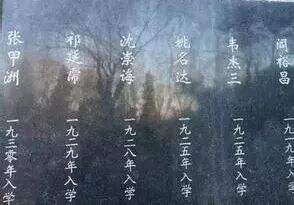 阎裕昌 一九一九年入学
韦杰三 一九二五年入学
姚名达 一九二五年入学
沈崇诲 一九二八年入学
祁延霈 一九二九年入学
张甲洲 一九三零年入学